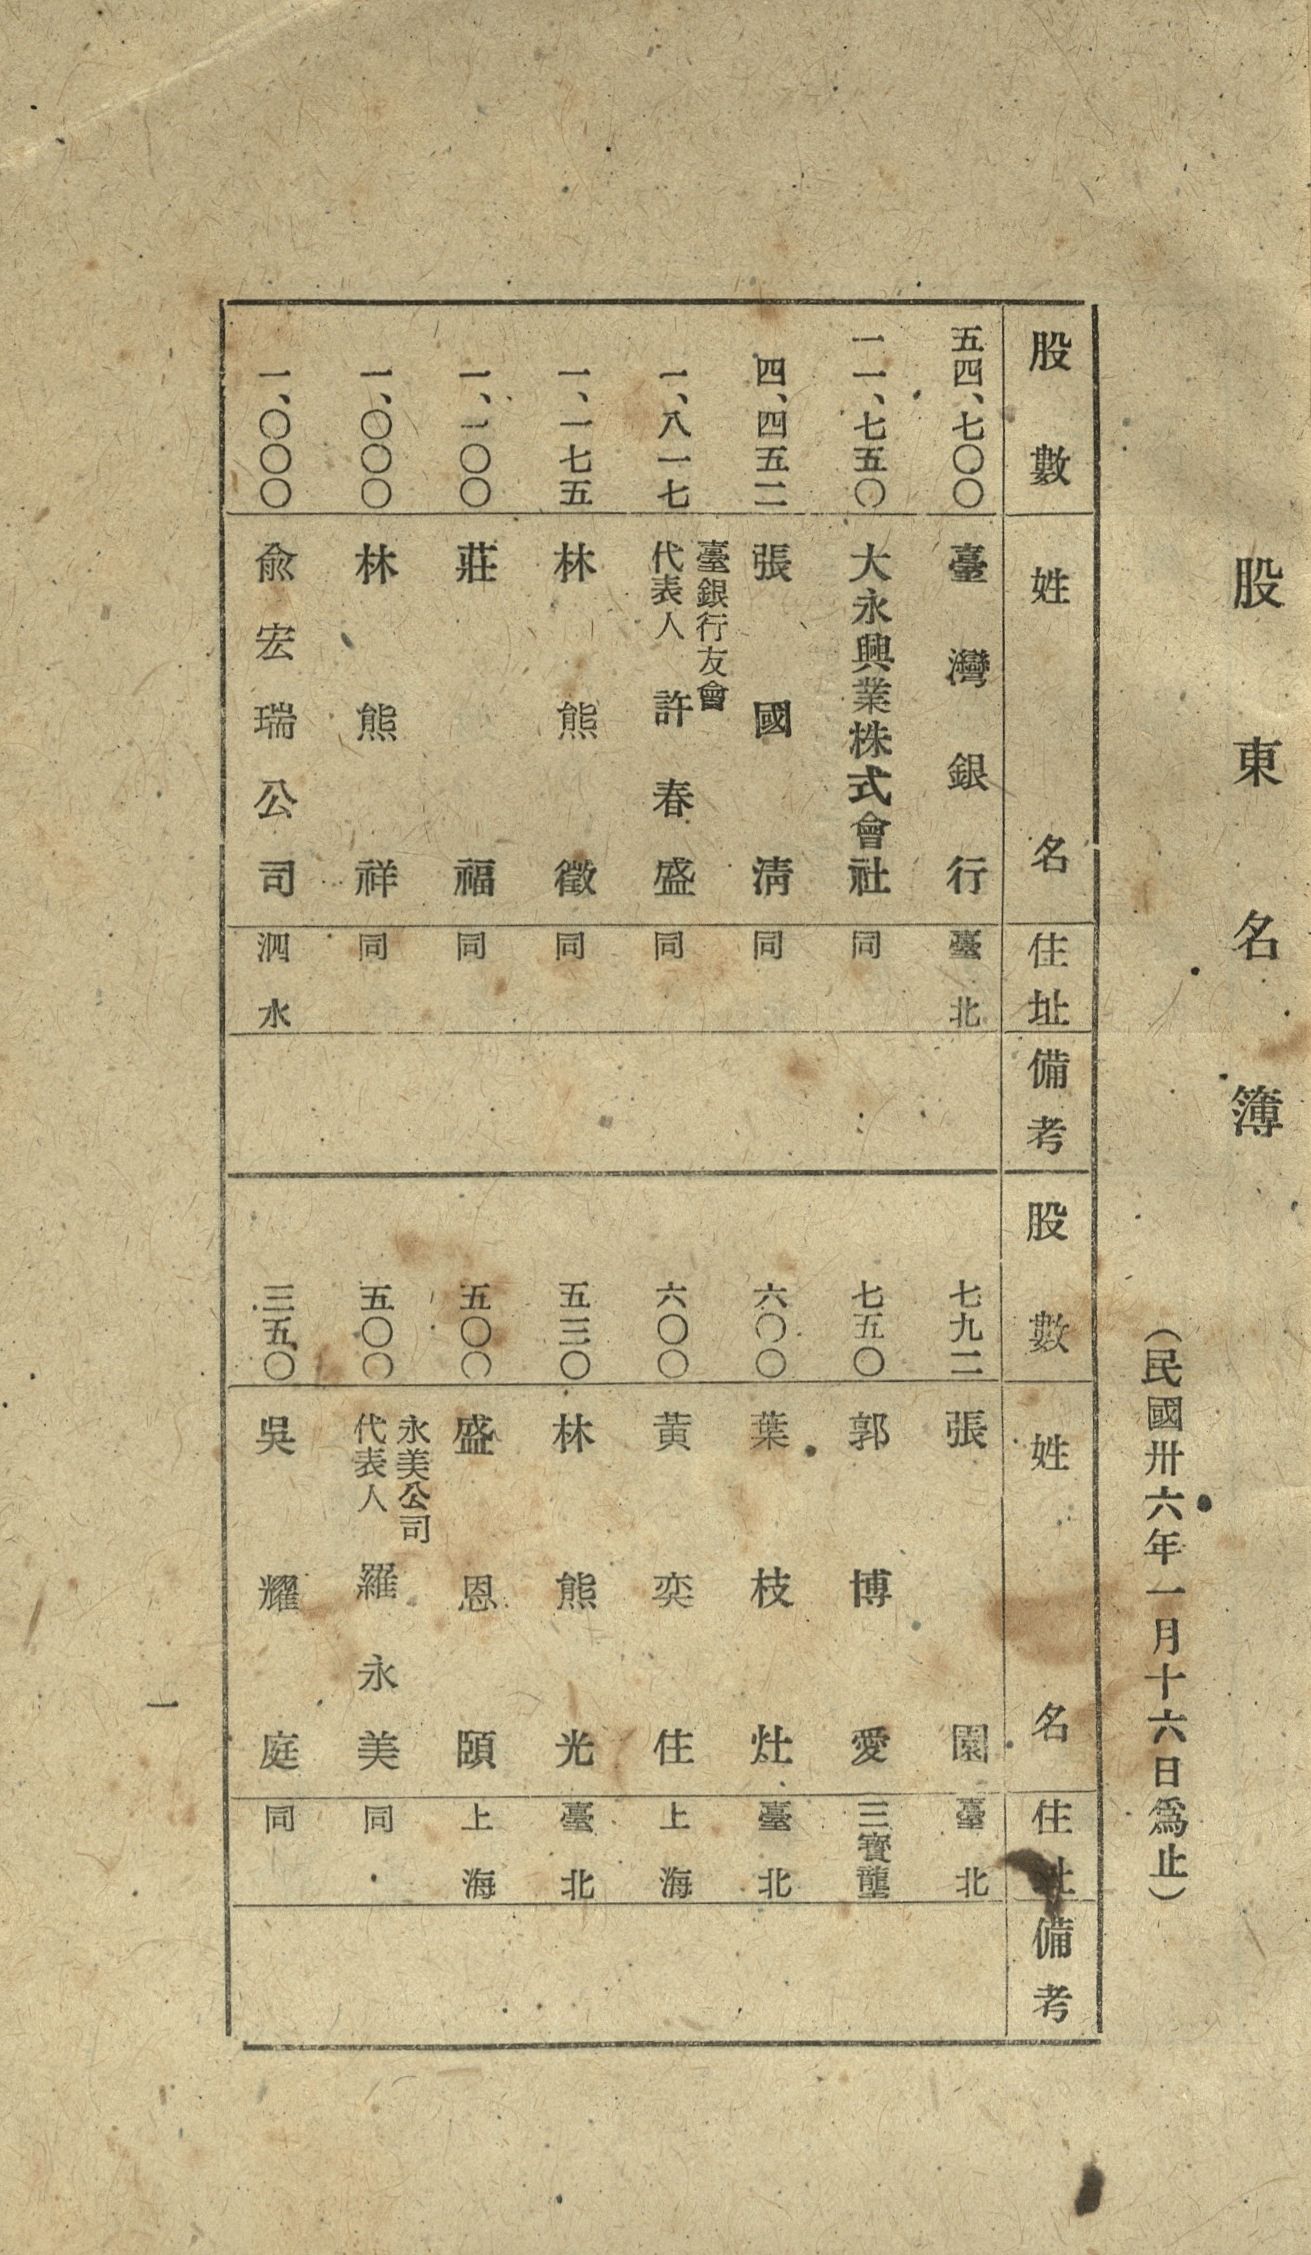 股東名簿
(民國卅六年一月十六日爲止)
股數 姓名 住址 備考
五四、七〇〇 臺灣銀行 臺北
一一、七五〇 大永興業株式會社 同
四、四五二 張國淸 同
一、八一七 臺銀行友會 代表人 許春盛 同
一、一七五 林熊徵 同
一、一〇〇 莊福 同
一、〇〇〇 林熊祥 同
一、〇〇〇 兪宏瑞公司 泗水
股數 姓名 住址 備考
七九二 張園 臺北
七五〇 郭博愛 三寳壟
六〇〇 葉枝灶 臺北
六〇〇 黃奕住 上海
五三〇 林熊光 臺北
五〇〇 盛恩頤 上海
五〇〇 永美公司 代表人 羅永美 同
三五〇 吳耀庭 同
一